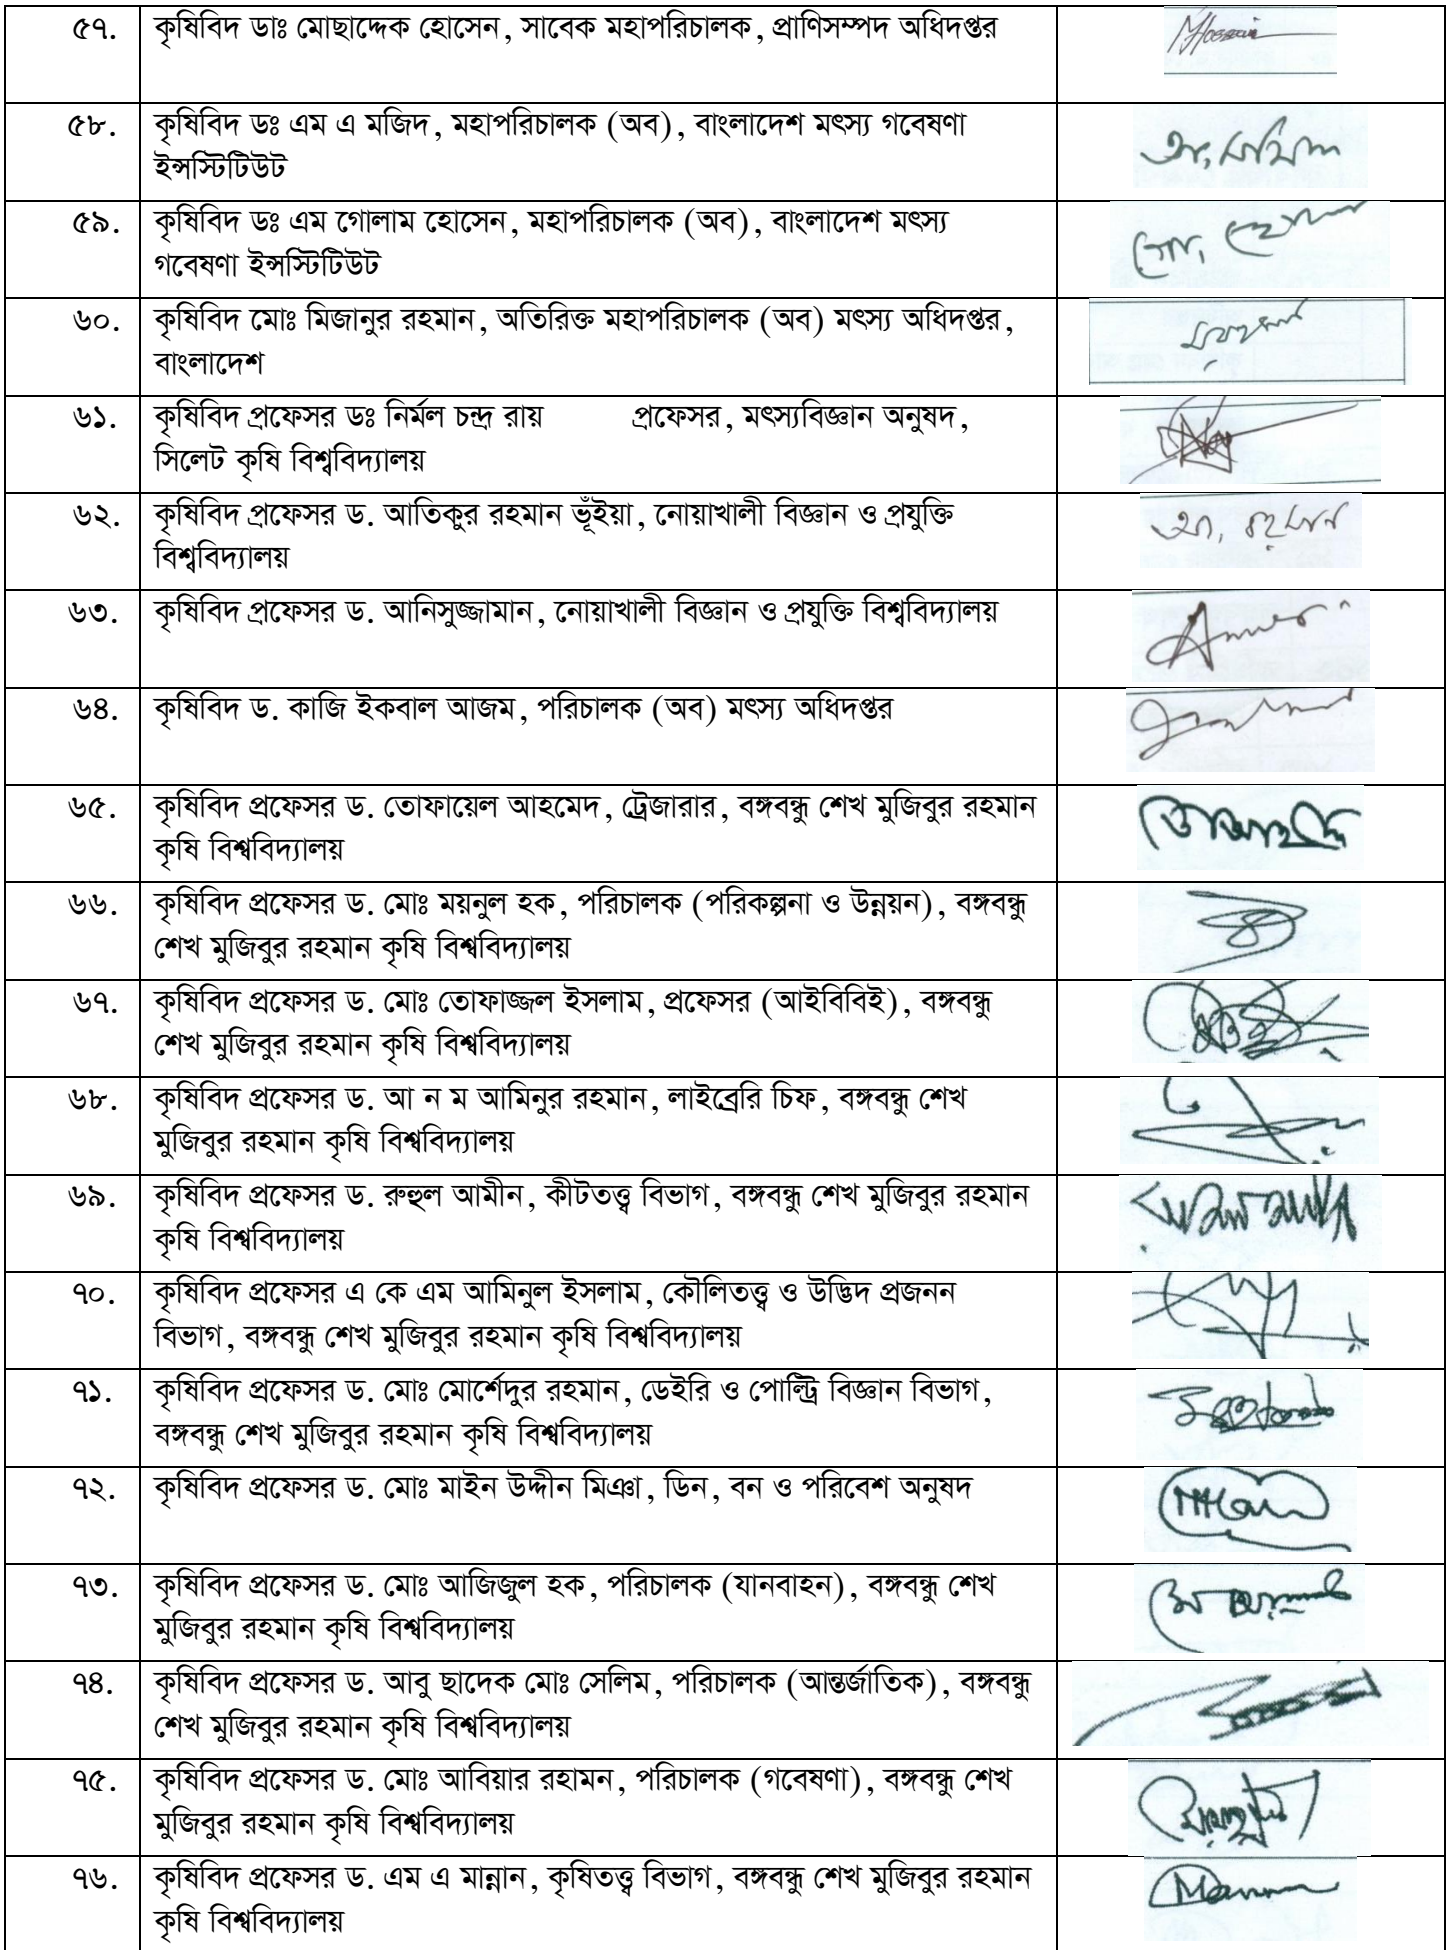 ৫৭. কৃষিবিদ ডাঃ মোছাদ্দেক হোসেন, সাবেক মহাপরিচালক, প্রাণিসম্পদ অধিদপ্তর
MHossain
৫৮. কৃষিবিদ ডঃ এম এ মজিদ, মহাপরিচালক (অব), বাংলাদেশ মৎস্য গবেষণা
ইন্সস্টিটিউট
৫৯. কৃষিবিদ ডঃ এম গোলাম হোসেন, মহাপরিচালক (অব), বাংলাদেশ মৎস্য
গবেষণা ইন্সস্টিটিউট
৬০. কৃষিবিদ মোঃ মিজানুর রহমান, অতিরিক্ত মহাপরিচালক (অব) মৎস্য অধিদপ্তর,
বাংলাদেশ
৬১. কৃষিবিদ প্রফেসর ডঃ নির্মল চন্দ্র রায় প্রফেসর, মৎস্যবিজ্ঞান অনুষদ,
সিলেট কৃষি বিশ্ববিদ্যালয়
৬২. কৃষিবিদ প্রফেসর ড. আতিকুর রহমান ভূঁইয়া, নোয়াখালী বিজ্ঞান ও প্রযুক্তি
বিশ্ববিদ্যালয়
৬৩. কৃষিবিদ প্রফেসর ড. আনিসুজ্জামান, নোয়াখালী বিজ্ঞান ও প্রযুক্তি বিশ্ববিদ্যালয়
৬৪. কৃষিবিদ ড. কাজি ইকবাল আজম, পরিচালক (অব) মৎস্য অধিদপ্তর
৬৫. কৃষিবিদ প্রফেসর ড. তোফায়েল আহমেদ, ট্রেজারার, বঙ্গবন্ধু শেখ মুজিবুর রহমান
কৃষি বিশ্ববিদ্যালয়
৬৬. কৃষিবিদ প্রফেসর ড. মোঃ ময়নুল হক, পরিচালক (পরিকল্পনা ও উন্নয়ন), বঙ্গবন্ধু
শেখ মুজিবুর রহমান কৃষি বিশ্ববিদ্যালয়
৬৭. কৃষিবিদ প্রফেসর ড. মোঃ তোফাজ্জল ইসলাম, প্রফেসর (আইবিবিই), বঙ্গবন্ধু
শেখ মুজিবুর রহমান কৃষি বিশ্ববিদ্যালয়
৬৮. কৃষিবিদ প্রফেসর ড. আ ন ম আমিনুর রহমান, লাইব্রেরি চিফ, বঙ্গবন্ধু শেখ
মুজিবুর রহমান কৃষি বিশ্ববিদ্যালয়
৬৯. কৃষিবিদ প্রফেসর ড. রুহুল আমীন, কীটতত্ত্ব বিভাগ, বঙ্গবন্ধু শেখ মুজিবুর রহমান
কৃষি বিশ্ববিদ্যালয়
৭০. কৃষিবিদ প্রফেসর এ কে এম আমিনুল ইসলাম, কৌলিতত্ত্ব ও উদ্ভিদ প্রজনন
বিভাগ, বঙ্গবন্ধু শেখ মুজিবুর রহমান কৃষি বিশ্ববিদ্যালয়
৭১. কৃষিবিদ প্রফেসর ড. মোঃ মোর্শেদুর রহমান, ডেইরি ও পোল্ট্রি বিজ্ঞান বিভাগ,
বঙ্গবন্ধু শেখ মুজিবুর রহমান কৃষি বিশ্ববিদ্যালয়
৭২. কৃষিবিদ প্রফেসর ড. মোঃ মাইন উদ্দীন মিঞা, ডিন, বন ও পরিবেশ অনুষদ
৭৩. কৃষিবিদ প্রফেসর ড. মোঃ আজিজুল হক, পরিচালক (যানবাহন), বঙ্গবন্ধু শেখ
মুজিবুর রহমান কৃষি বিশ্ববিদ্যালয়
৭৪. কৃষিবিদ প্রফেসর ড. আবু ছাদেক মোঃ সেলিম, পরিচালক (আন্তর্জাতিক), বঙ্গবন্ধু
শেখ মুজিবুর রহমান কৃষি বিশ্ববিদ্যালয়
৭৫. কৃষিবিদ প্রফেসর ড. মোঃ আবিয়ার রহামন, পরিচালক (গবেষণা), বঙ্গবন্ধু শেখ
মুজিবুর রহমান কৃষি বিশ্ববিদ্যালয়
৭৬. কৃষিবিদ প্রফেসর ড. এম এ মান্নান, কৃষিতত্ত্ব বিভাগ, বঙ্গবন্ধু শেখ মুজিবুর রহমান
কৃষি বিশ্ববিদ্যালয়
Mannan